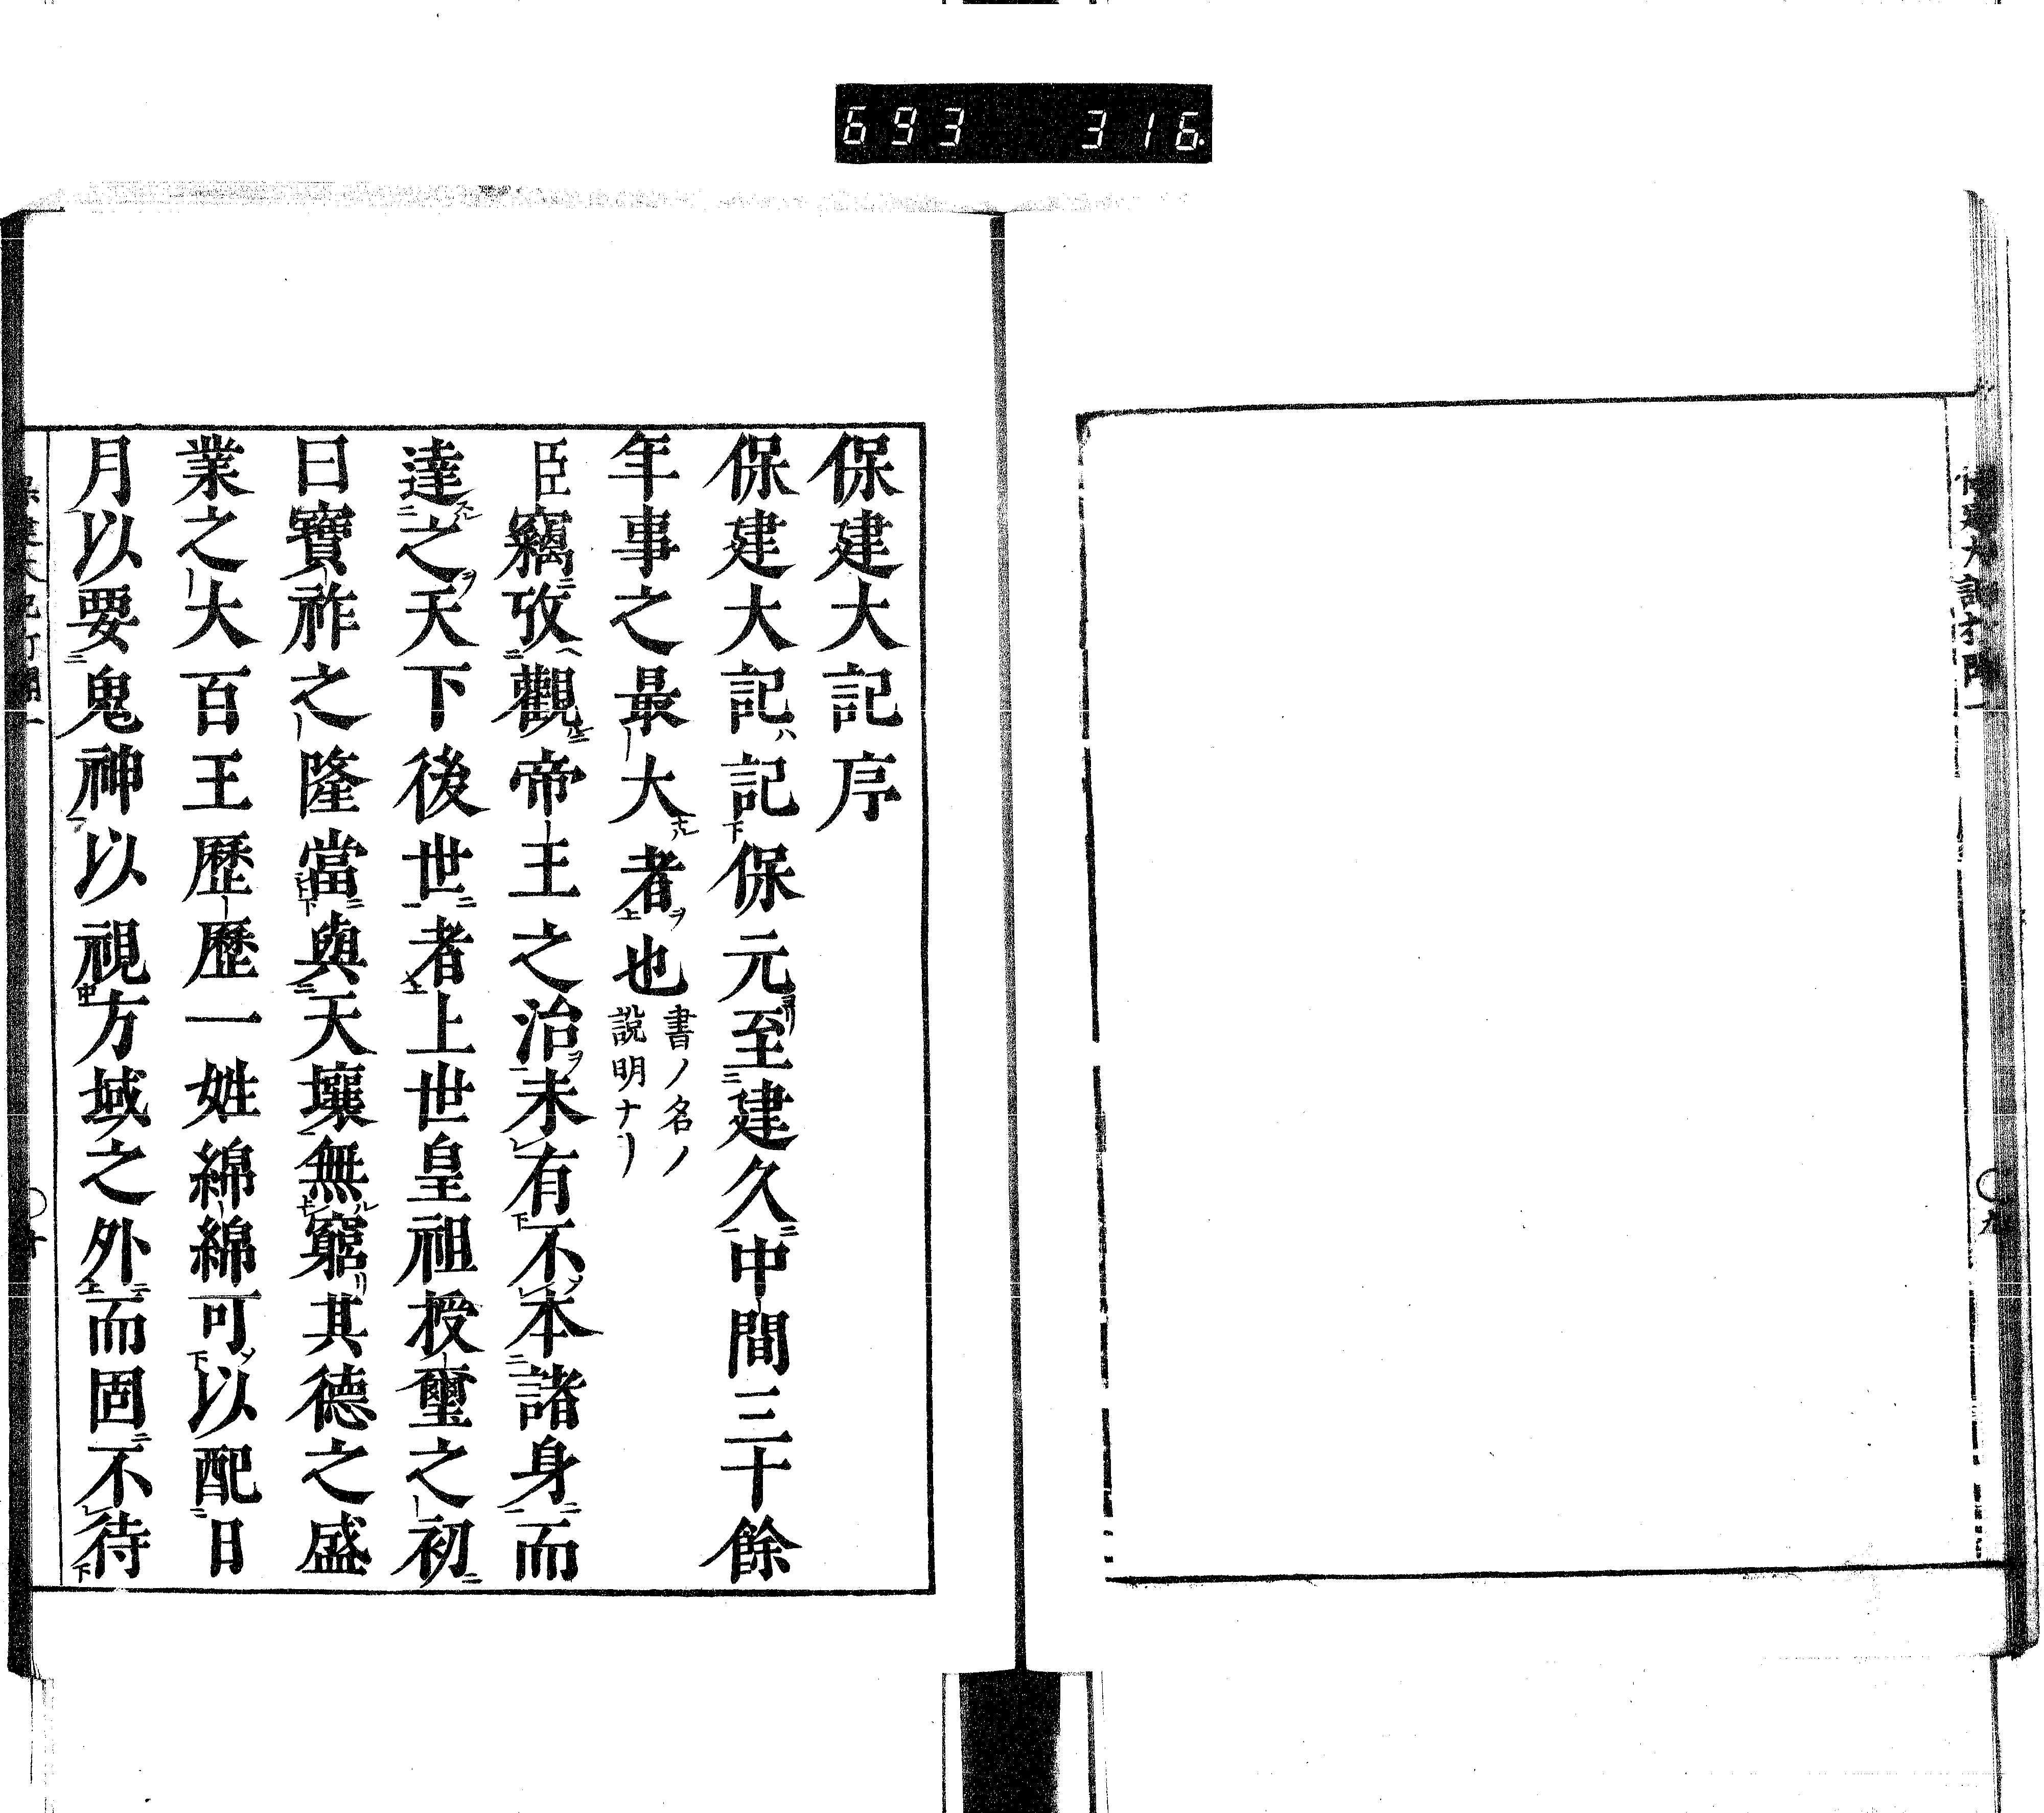 693 316
保建大記序
保建大記記保元至建久中間三十餘
年事之最大者也
書ノ名ノ
説明ナリ
臣竊攷觀帝王之治未有不本諸身而
達之天下後世者上世皇祖授璽之初
曰寶祚之隆當與天壤無窮其德之盛
業之大百王歷歷一姓綿綿可以配日
月以要鬼神以視方域之外而固不待